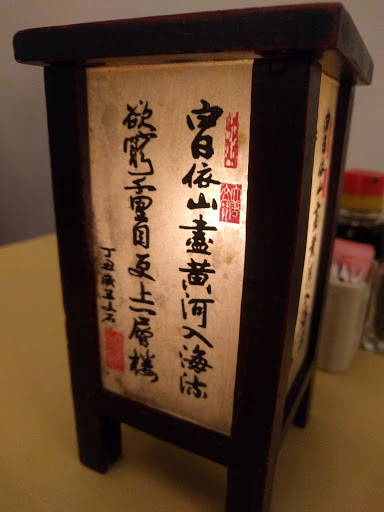 白日依山盡黄河入海流
欲窮千里目更上一層楼
丁丑歲